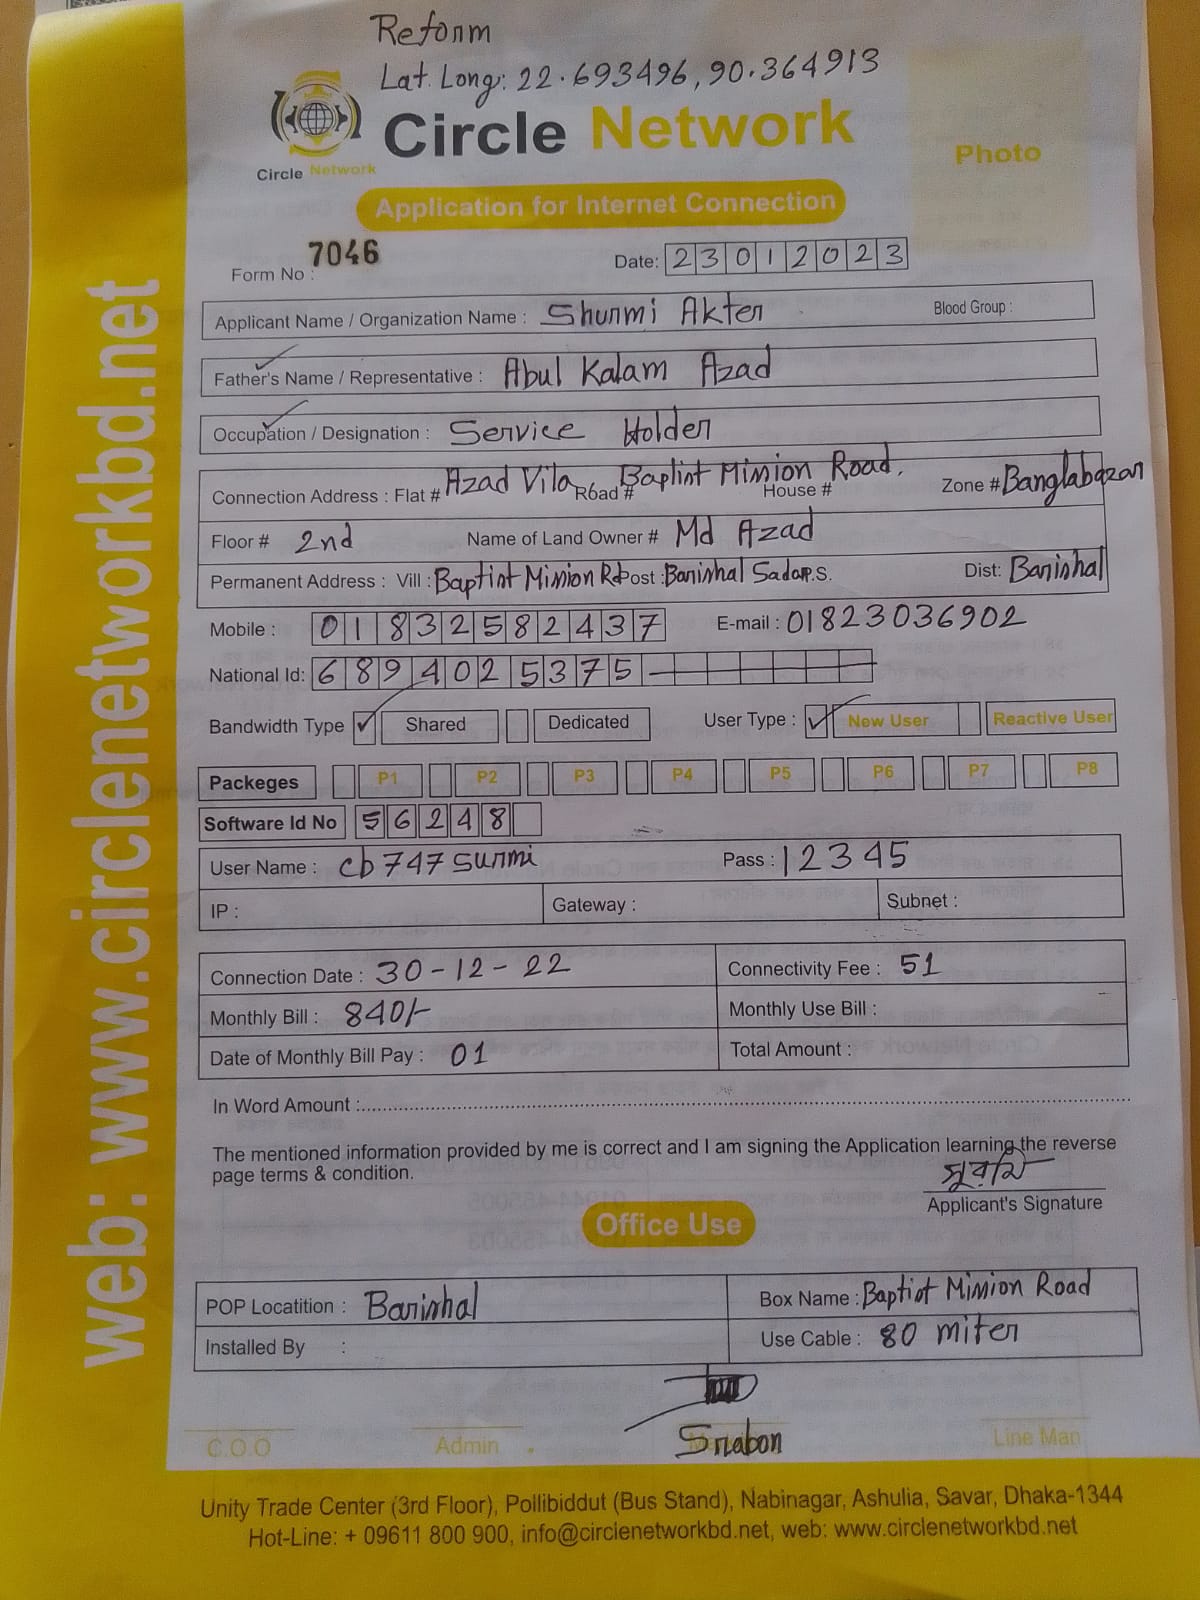 Reform
Lat. Long: 22.693496, 90.364913
Circle Network
Circle Network
Photo
Application for Internet Connection
Form No : 7046
Date: 23012023
Applicant Name / Organization Name : Shurmi Akter Blood Group :
Father's Name / Representative : Abul Kalam Azad
Occupation / Designation : Service Holder
Connection Address : Flat # Azad Vila Road # Baptist Mission Road. House # Zone # Banglabazar
Floor # 2nd Name of Land Owner # Md Azad
Permanent Address : Vill : Baptist Mission Rd Post : Barishal Sadar P.S. Dist: Barishal
Mobile : 01832582437 E-mail : 01823036902
National Id: 6894025375
Bandwidth Type ✓ Shared Dedicated User Type : ✓ New User Reactive User
Packeges P1 P2 P3 P4 P5 P6 P7 P8
Software Id No 56248
User Name : cb747surmi Pass : 12345
IP : Gateway : Subnet :
Connection Date : 30-12-22 Connectivity Fee : 51
Monthly Bill : 840/- Monthly Use Bill :
Date of Monthly Bill Pay : 01 Total Amount :
In Word Amount :
The mentioned information provided by me is correct and I am signing the Application learning the reverse
page terms & condition.
সুরমি
Applicant's Signature
Office Use
POP Locatition : Barishal Box Name : Baptist Mission Road
Installed By : Use Cable : 80 miter
C.O.O Admin Srabon Line Man
Unity Trade Center (3rd Floor), Pollibiddut (Bus Stand), Nabinagar, Ashulia, Savar, Dhaka-1344
Hot-Line: + 09611 800 900, info@circlenetworkbd.net, web: www.circlenetworkbd.net
web: www.circlenetworkbd.net